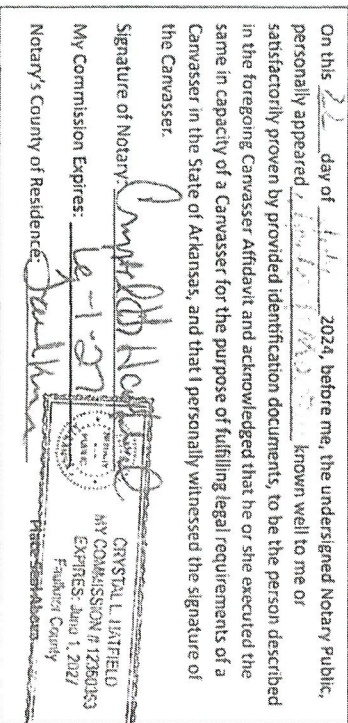 On this 22 day of 2024, before me, the undersigned Notary Public,
personally appeared known well to me or
satisfactorily proven by provided identification documents, to be the person described
in the foregoing Canvasser Affidavit and acknowledged that he or she executed the
same in capacity of a Canvasser for the purpose of fulfilling legal requirements of a
Canvasser in the State of Arkansas, and that I personally witnessed the signature of
the Canvasser.
Signature of Notary:
My Commission Expires: 6-1-27
Notary's County of Residence: Faulkner
Place Seal Above
CRYSTAL L. HATFIELD
MY COMMISSION # 12360353
EXPIRES: June 1, 2027
Faulkner County